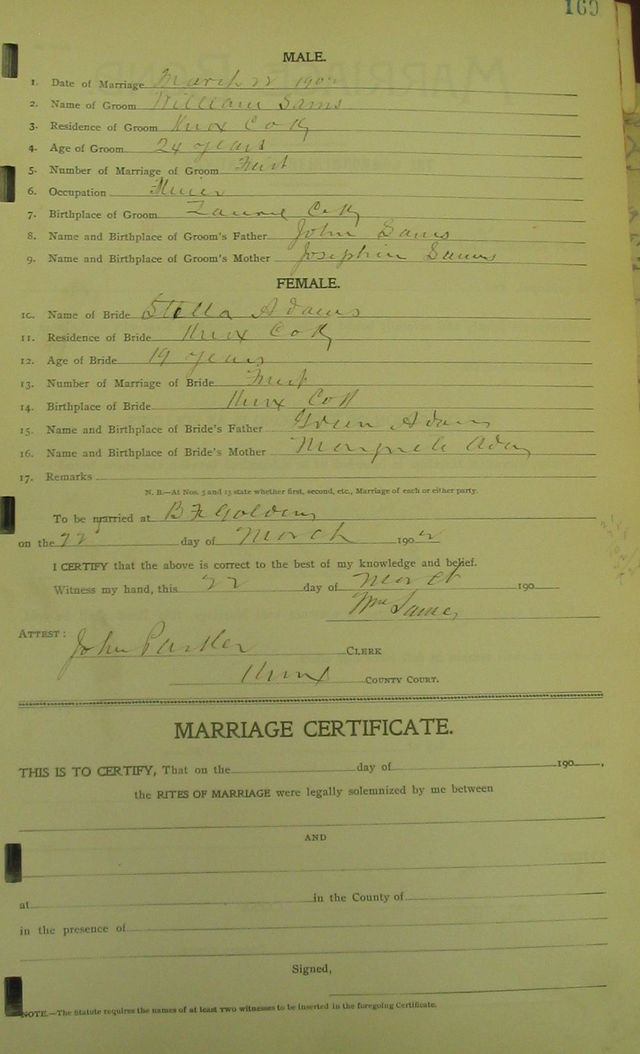 169
MALE.
1. Date of Marriage March 22 190
2. Name of Groom William Sams
3. Residence of Groom Knox Co Ky
4. Age of Groom 24 years
5. Number of Marriage of Groom First
6. Occupation Miner
7. Birthplace of Groom Laurel Co Ky
8. Name and Birthplace of Groom's Father John Sams
9. Name and Birthplace of Groom's Mother Josephin Sams
FEMALE.
10. Name of Bride Stella Adams
11. Residence of Bride Knox Co Ky
12. Age of Bride 19 years
13. Number of Marriage of Bride First
14. Birthplace of Bride Knox Co
15. Name and Birthplace of Bride's Father Green Adams
16. Name and Birthplace of Bride's Mother
17. Remarks
N. B.—At Nos. 5 and 13 state whether first, second, etc., Marriage of each or either party.
To be married at B F Goldens
on the 22 day of March 1902
I CERTIFY that the above is correct to the best of my knowledge and belief.
Witness my hand, this 22 day of March 190
Wm Sams
ATTEST: John Parker CLERK
Knox COUNTY COURT.
MARRIAGE CERTIFICATE.
THIS IS TO CERTIFY, That on the day of 190 ,
the RITES OF MARRIAGE were legally solemnized by me between
AND
at in the County of
in the presence of
Signed,
NOTE.—The Statute requires the names of at least two witnesses to be inserted in the foregoing Certificate.